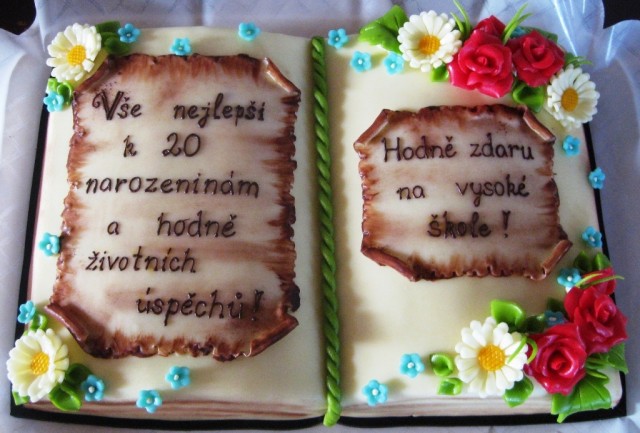 Vše nejlepší
k 20
narozeninám
a hodně
životních
úspěchů!
Hodně zdaru
na vysoké
škole!